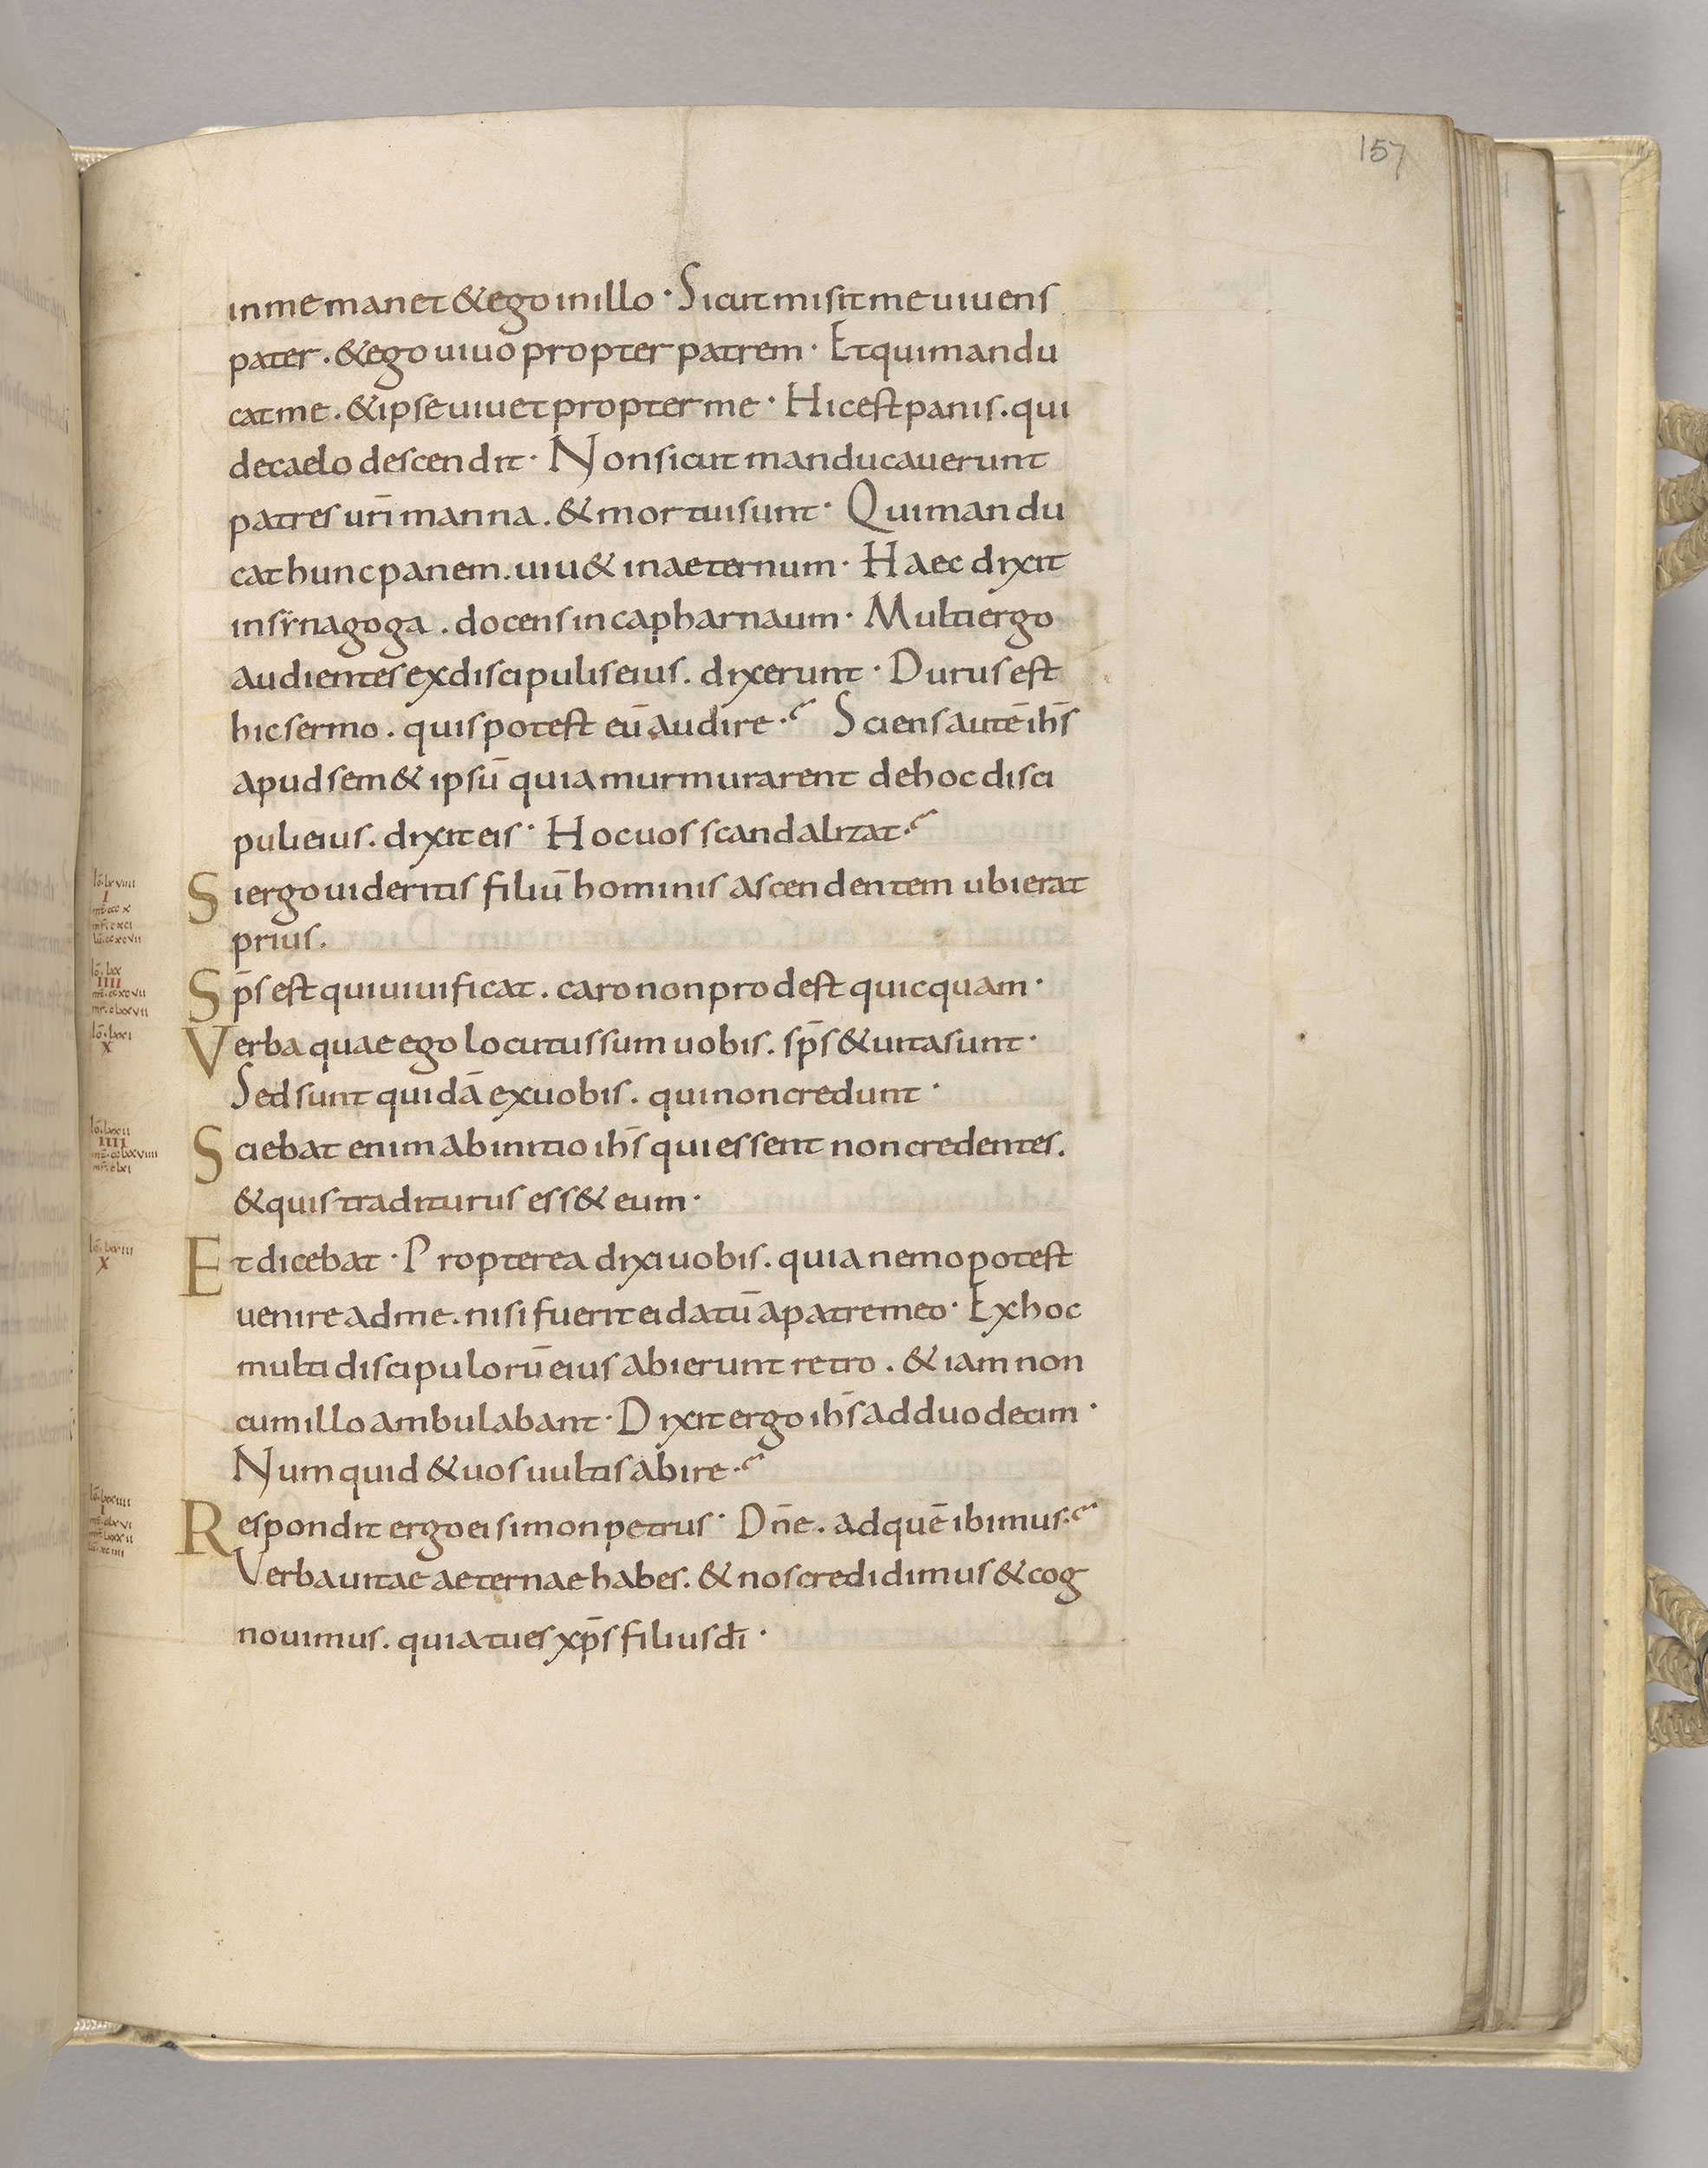 157
in me manet & ego in illo · Sicut misit me uiuens
pater . & ego uiuo propter patrem · Et qui mandu
cat me . & ipse uiuet propter me · Hic est panis . qui
de caelo descendit · Non sicut manducauerunt
patres uri̅ manna . & mortui sunt · Qui mandu
cat hunc panem . uiu& in aeternum · Haec dixit
in synagoga . docens in capharnaum · Multi ergo
audientes ex discipulis eius . dixerunt · Durus est
hic sermo . quis potest eu̅ audire ? Sciens aute̅ ih̅s
apud sem& ipsu̅ quia murmurarent de hoc disci
puli eius . dixit eis · Hoc uos scandalizat ?
lō. lxviiii
I
mt̅. ccc x
mr̅. cxci
lu̅. ccxcvii
Si ergo uideritis filiu̅ hominis ascendentem ubi erat
prius .
lō. lxx
IIII
Sp̅s est qui uiuificat . caro non prodest quicquam ·
lō. lxxi
X
Verba quae ego locutus sum uobis . sp̅s & uita sunt ·
Sed sunt quida̅ ex uobis . qui non credunt ·
lō. lxxii
IIII
Sciebat enim ab initio ih̅s qui essent non credentes .
& quis traditurus ess& eum ·
lō. lxxiii
X
Et dicebat · Propterea dixi uobis . quia nemo potest
uenire ad me . nisi fuerit ei datu̅ a patre meo · Ex hoc
multi discipuloru̅ eius abierunt retro . & iam non
cum illo ambulabant · Dixit ergo ih̅s ad duodecim ·
Numquid & uos uultis abire ?
lō. lxxiiii
I
Respondit ergo ei simon petrus · Dn̅e . ad que̅ ibimus ?
Verba uitae aeternae habes . & nos credidimus & cog
nouimus . quia tu es xp̅s filius di̅ ·